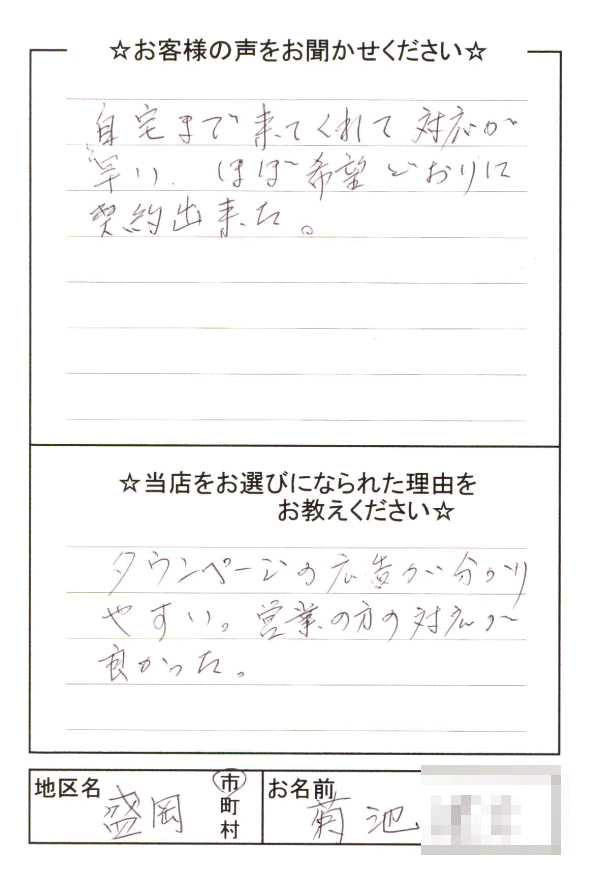 ☆お客様の声をお聞かせください☆
自宅まで来てくれて対応が
早い、ほぼ希望どおりに
契約出来た。
☆当店をお選びになられた理由を
お教えください☆
タウンページの広告が分かり
やすい。営業の方の対応が
良かった。
地区名 盛岡 市
町
村
お名前 菊池